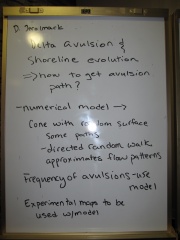 D. Jerolmack
Delta Avulsion &
Shoreline evolution
⇒ how to get avulsion
path?
-numerical model →
Cone with random surface
some paths
- directed random walk
approximates flow patterns
Frequency of avulsions - use
model
Experimental maps to be
used w/model